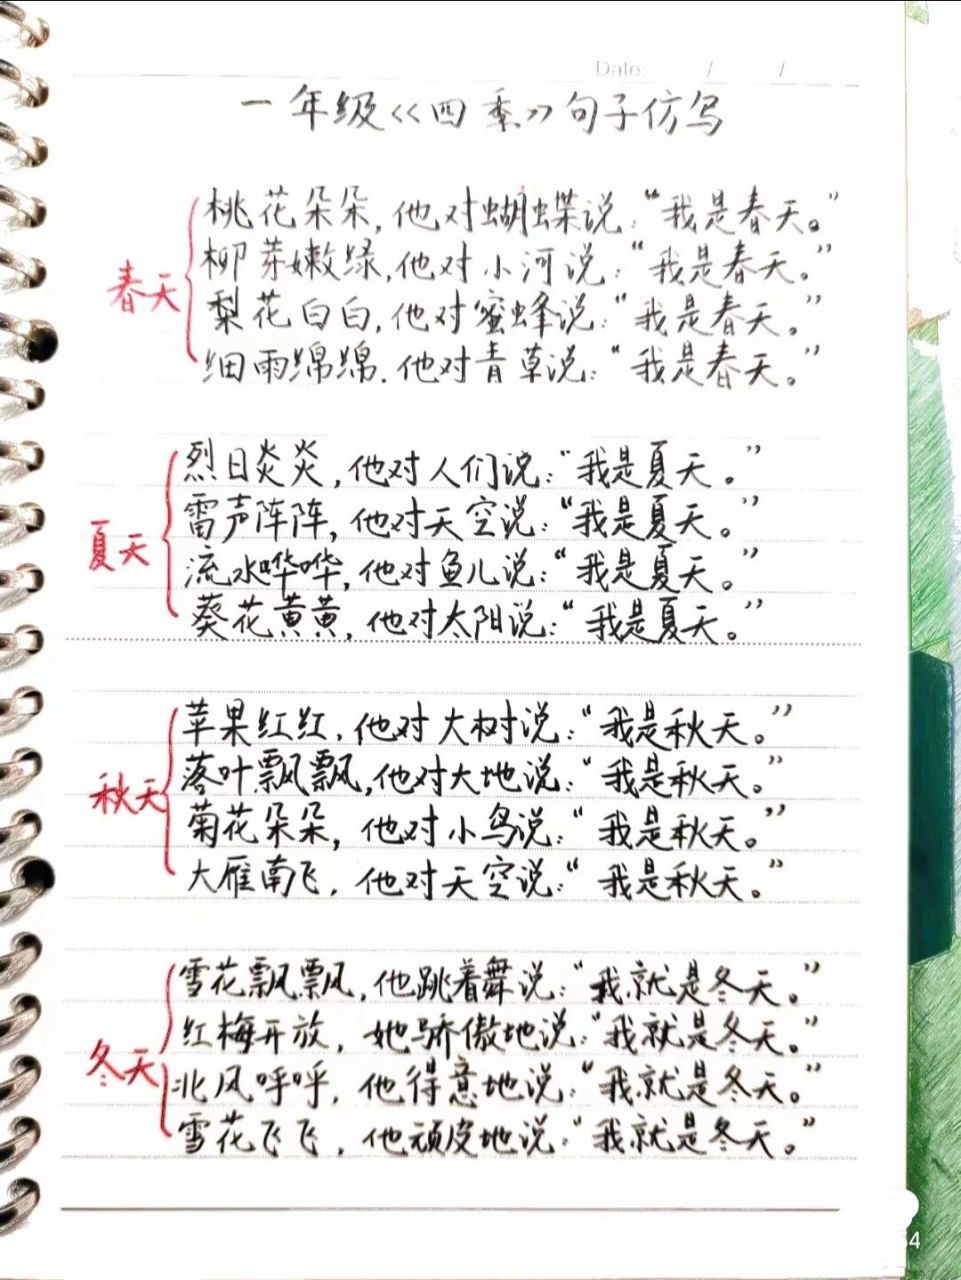 Date: / /
一年级《四季》句子仿写
春天
桃花朵朵，他对蝴蝶说：“我是春天。”
柳芽嫩绿，他对小河说：“我是春天。”
梨花白白，他对蜜蜂说：“我是春天。”
细雨绵绵，他对青草说：“我是春天。”
夏天
烈日炎炎，他对人们说：“我是夏天。”
雷声阵阵，他对天空说：“我是夏天。”
流水哗哗，他对鱼儿说：“我是夏天。”
葵花黄黄，他对太阳说：“我是夏天。”
秋天
苹果红红，他对大树说：“我是秋天。”
落叶飘飘，他对大地说：“我是秋天。”
菊花朵朵，他对小鸟说：“我是秋天。”
大雁南飞，他对天空说：“我是秋天。”
冬天
雪花飘飘，他跳着舞说：“我就是冬天。”
红梅开放，她骄傲地说：“我就是冬天。”
北风呼呼，他得意地说：“我就是冬天。”
雪花飞飞，他顽皮地说：“我就是冬天。”